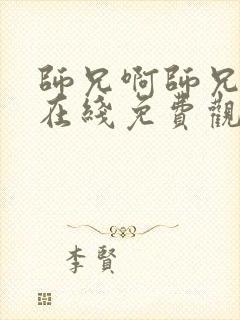 師兄啊師兄
在綫免費觀
李賢